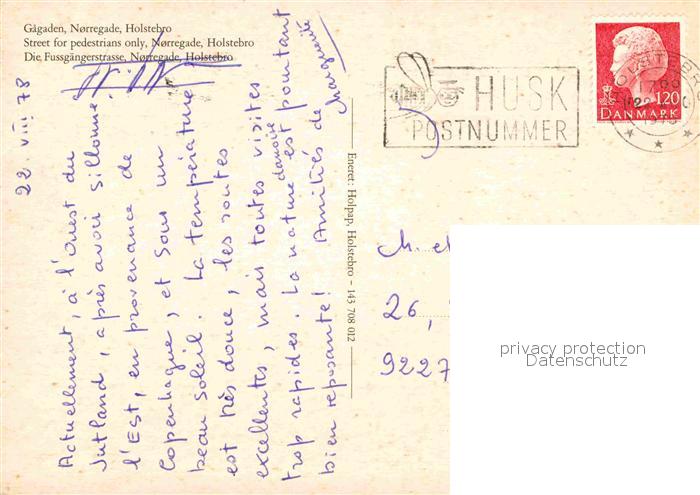 Gågaden, Nørregade, Holstebro
Street for pedestrians only, Nørregade, Holstebro
Die Fussgängerstrasse, Nørregade, Holstebro
22. VIII 78
Actuellement, à l'Ouest du
Jutland, après avoir sillonné
l'Est, en provenance de
Copenhague, et sous un
beau soleil. La température
est très douce, les routes
excellentes, mais toutes visites
trop rapides. La nature danoise est pourtant
bien reposante! Amitiés de
Marguerite
Eneret: Holpap, Holstebro - 143 708 012
HUSK
POSTNUMMER
1.20
DANMARK
M. et
26,
9227
privacy protection
Datenschutz